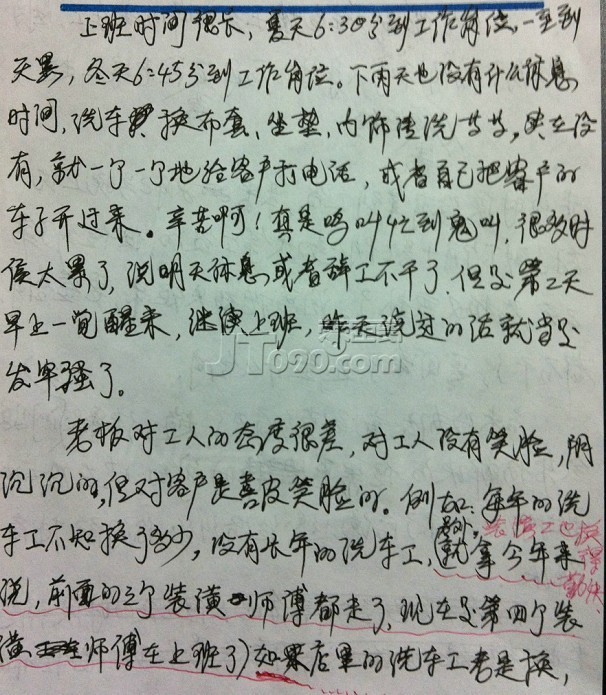 上班时间很长，夏天6:30分到工作岗位、一直到
天黑，冬天6:45分到工作岗位。下雨天也没有什么休息
时间，洗车换布套、坐垫、内饰清洗等等，实在没
有，就一个一个地给客户打电话，或者自己把客户的
车子开过来。辛苦啊！真是鸡叫忙到鬼叫，很多时
侯太累了，说明天休息或者辞工不干了，但是第二天
早上一觉醒来，继续上班，昨天说过的话就当是
发牢骚了。
JT090.com
老板对工人的态度很差，对工人没有笑脸，阴
沉沉的，但对客户是喜皮笑脸的。例如：每年的洗
车工不知换了多少，没有长年的洗车工，
另外，装潢工也换得勤快
就拿今年来
说，前面的三个装潢师傅都走了，现在是第四个装
潢师傅在上班了）如果店里的洗车工老是换，